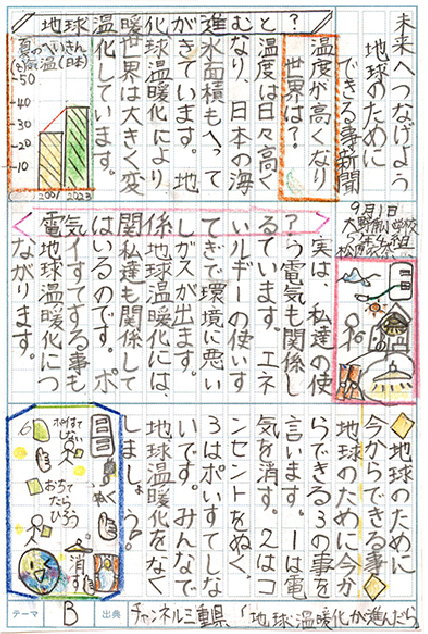 未来へつなげよう
地球のために
できる事新聞
9月1日
地球温暖化が進む？
温度が高くなり
世界は？？
と温度は日々高く
なり、日本の海
氷面積もへって
きています。地
球温暖化により
世界は大きく変
化しています。
(日本)
50
40
30
10
2001 2023
電気は関係している？
実は、私達の使
う電気も関係し
ています。エネ
ルギーの使いす
ぎで環境に悪い
ガスが出ます。
地球温暖化には、
私達も関係して
いるのです。ポ
イすてする事も
地球温暖化につ
ながります。
地球のために
今からできる事
地球のために今か
らできる3の事を
言います。1は電
気を消す。2はコ
ンセントをぬく、
3はポいすてしな
いです。みんなで
地球温暖化をなく
しましょう。
ぬく
消す
おちて
たら
ひろう
テーマ B 出典 チャンネル三重県「地球温暖化が進んだら